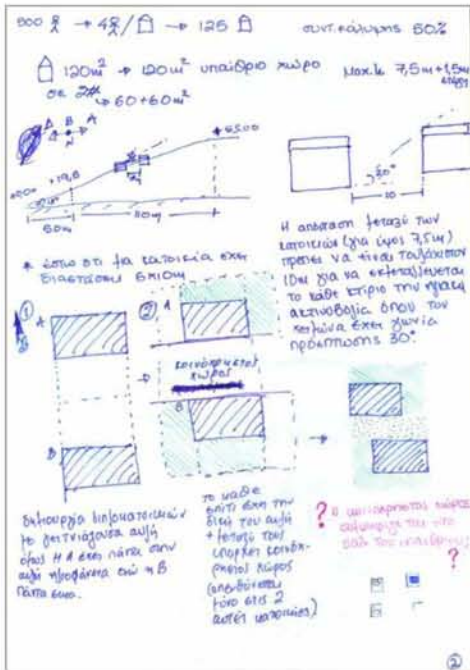 500 → 4 / → 125 συντ. κάλυψης 50%
120m² → 120m² υπαίθριο χώρο Max.h 7,5m +1,5m στέγη
σε 2
↳ 60+60m²
Δ B A
N
+55.00
+19,8
50m 110m
30°
10
* έστω ότι μια κατοικία έχει διαστάσεις 6×10m
Η απόσταση μεταξύ των
κατοικιών (για ύψος 7,5m)
πρέπει να είναι τουλάχιστον
10m για να εκμεταλλεύεται
το κάθε κτίριο την ηλιακή
ακτινοβολία όπου τον
χειμώνα έχει γωνία
πρόσπτωσης 30°
① A
② A
κοινόχρηστος
χώρος
B
B
δημιουργία διπλοκατοικιών
με γειτνιάζουσα αυλή
όμως η A έχει πάντα στην
αυλή ηλιοφάνεια ενώ η B
πάντα σκιά.
το κάθε
σπίτι έχει την
δική του αυλή
+ μεταξύ τους
υπάρχει κοινόχ-
ρηστος χώρος
(απευθύνεται
μόνο στις 2
αυτές κατοικίες)
? ο κοινόχρηστος χώρος
?
②